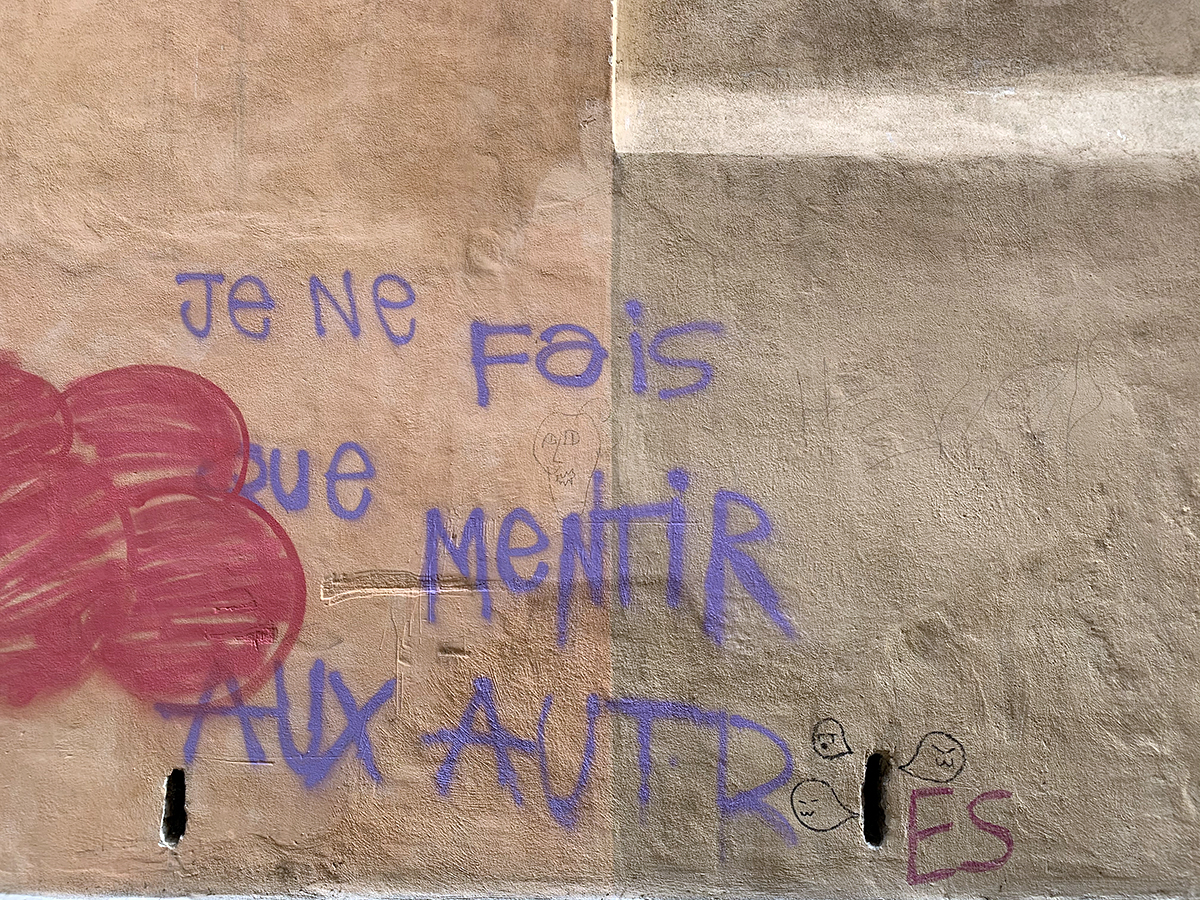 Je Ne
Fais
que
MeNTiR
AUX AUTR
ES